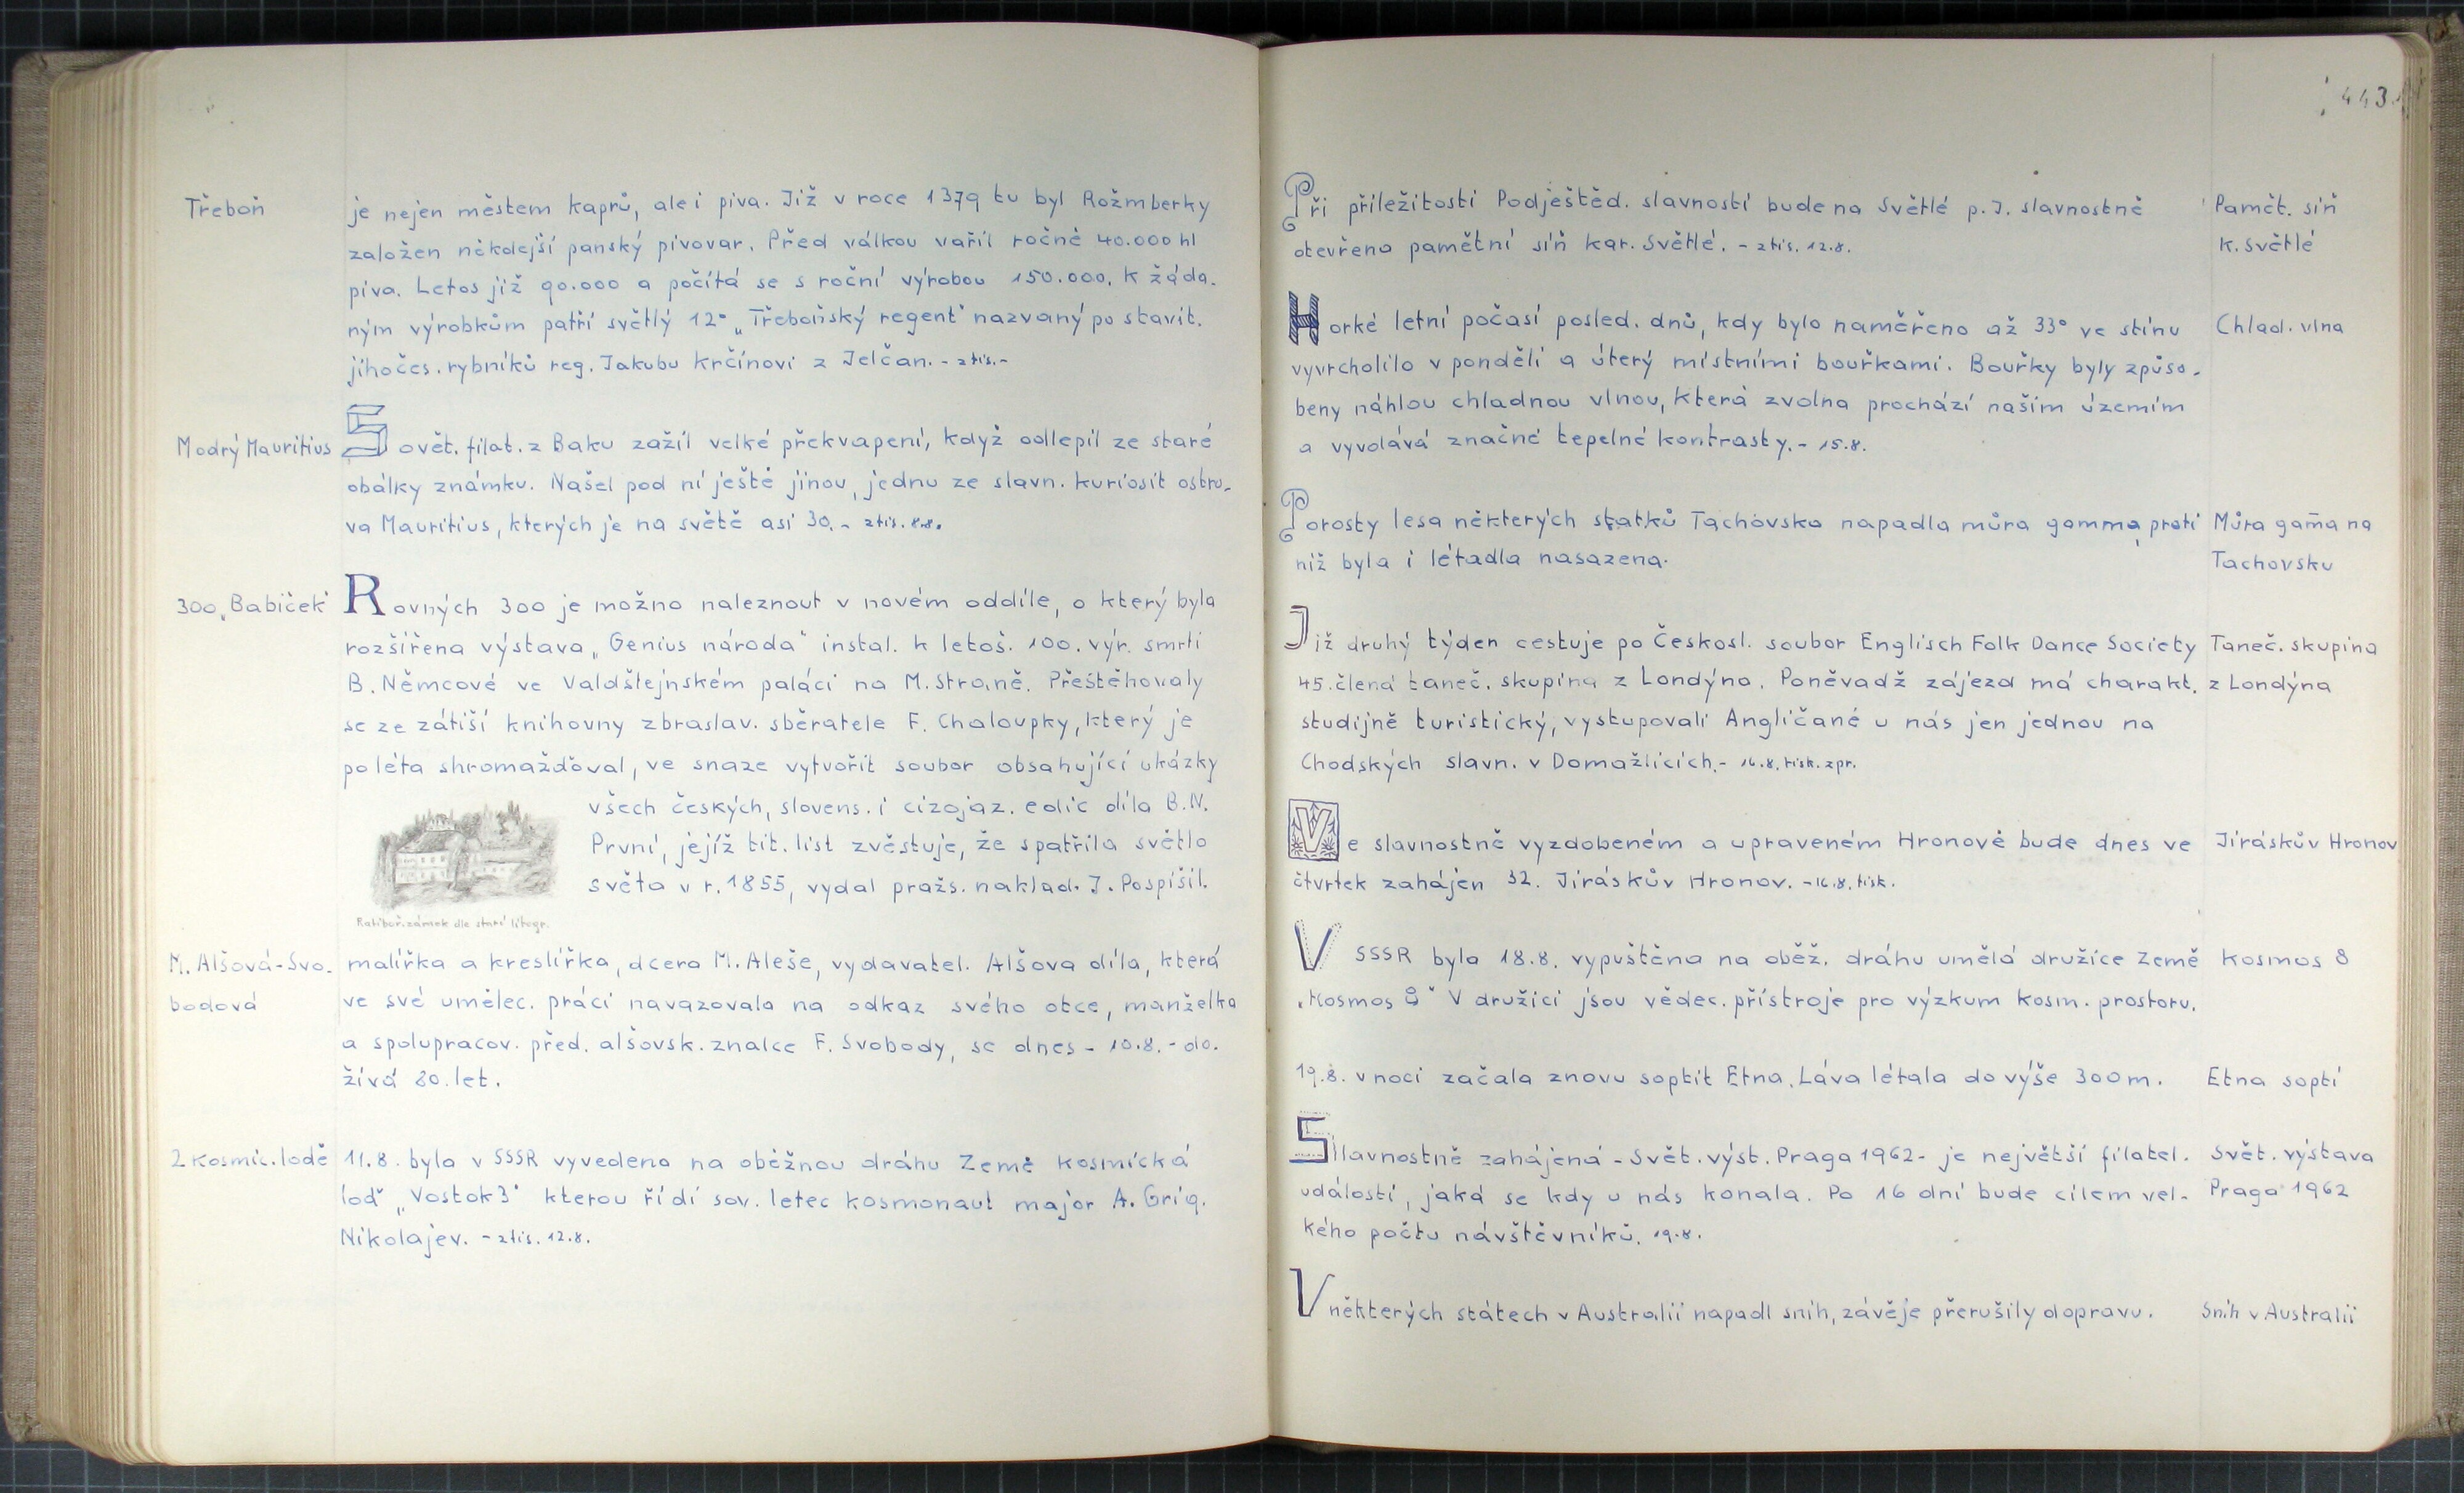 Třeboň
je nejen městem kaprů, ale i piva. Již v roce 1379 tu byl Rožmberky
založen někdejší panský pivovar. Před válkou vařil ročně 40.000 hl
piva. Letos již 90.000 a počítá se s roční výrobou 150.000. K žáda-
ným výrobkům patří světlý 12° „Třeboňský regent" nazvaný po stavit.
jihočes. rybníků reg. Jakubu Krčínovi z Jelčan. - z tis. -
Modrý Mauritius
Sovět. filat. z Baku zažil velké překvapení, když odlepil ze staré
obálky známku. Našel pod ní ještě jinou, jednu ze slavn. kuriosit ostro-
va Mauritius, kterých je na světě asi 30. - z tis. 8.8.
300 „Babiček"
Rovných 300 je možno naleznout v novém oddíle, o který byla
rozšířena výstava „Genius národa" instal. k letoš. 100. výr. smrti
B. Němcové ve Valdštejnském paláci na M. Straně. Přestěhovaly
se ze zátiší knihovny zbraslav. sběratele F. Chaloupky, který je
po léta shromažďoval, ve snaze vytvořit soubor obsahující ukázky
všech českých, slovens. i cizojaz. edic díla B.N.
První, jejíž tit. list zvěstuje, že spatřila světlo
světa v r. 1855, vydal pražs. naklad. J. Pospíšil.
Ratiboř. zámek dle staré litogr.
M. Alšová-Svo-
bodová
malířka a kreslířka, dcera M. Aleše, vydavatel. Alšova díla, která
ve své umělec. práci navazovala na odkaz svého otce, manželka
a spolupracov. před. alšovsk. znalce F. Svobody, se dnes - 10.8. - do-
žívá 80. let.
2 kosmic. lodě
11.8. byla v SSSR vyvedena na oběžnou dráhu Země kosmická
loď „Vostok 3" kterou řídí sov. letec kosmonaut major A. Grig.
Nikolajev. - z tis. 12.8.
443.
Při příležitosti Podještěd. slavností bude na Světlé p. J. slavnostně
otevřena pamětní síň Kar. Světlé. - z tis. 12.8.
Pamět. síň
K. Světlé
Horké letní počasí posled. dnů, kdy bylo naměřeno až 33° ve stínu
vyvrcholilo v pondělí a úterý místními bouřkami. Bouřky byly způso-
beny náhlou chladnou vlnou, která zvolna prochází naším územím
a vyvolává značné tepelné kontrasty. - 15.8.
Chlad. vlna
Porosty lesa některých statků Tachovska napadla můra gamma, proti
níž byla i létadla nasazena.
Můra gam̄a na
Tachovsku
Již druhý týden cestuje po Českosl. soubor Englisch Folk Dance Society
45. člená taneč. skupina z Londýna. Poněvadž zájezd má charakt.
studijně turistický, vystupovali Angličané u nás jen jednou na
Chodských slavn. v Domažlicích. - 16.8. tisk. zpr.
Taneč. skupina
z Londýna
Ve slavnostně vyzdobeném a upraveném Hronově bude dnes ve
čtvrtek zahájen 32. Jiráskův Hronov. - 16.8. tisk.
Jiráskův Hronov
V SSSR byla 18.8. vypuštěna na oběž. dráhu umělá družice Země
„Kosmos 8" V družici jsou vědec. přístroje pro výzkum kosm. prostoru.
Kosmos 8
19.8. v noci začala znovu soptit Etna. Láva létala do výše 300 m.
Etna soptí
Sllavnostně zahájená - Svět. výst. Praga 1962 - je největší filatel.
událostí, jaká se kdy u nás konala. Po 16 dní bude cílem vel-
kého počtu návštěvníků. 19.8.
Svět. výstava
Praga 1962
V některých státech v Australii napadl sníh, závěje přerušily dopravu.
Sníh v Australii